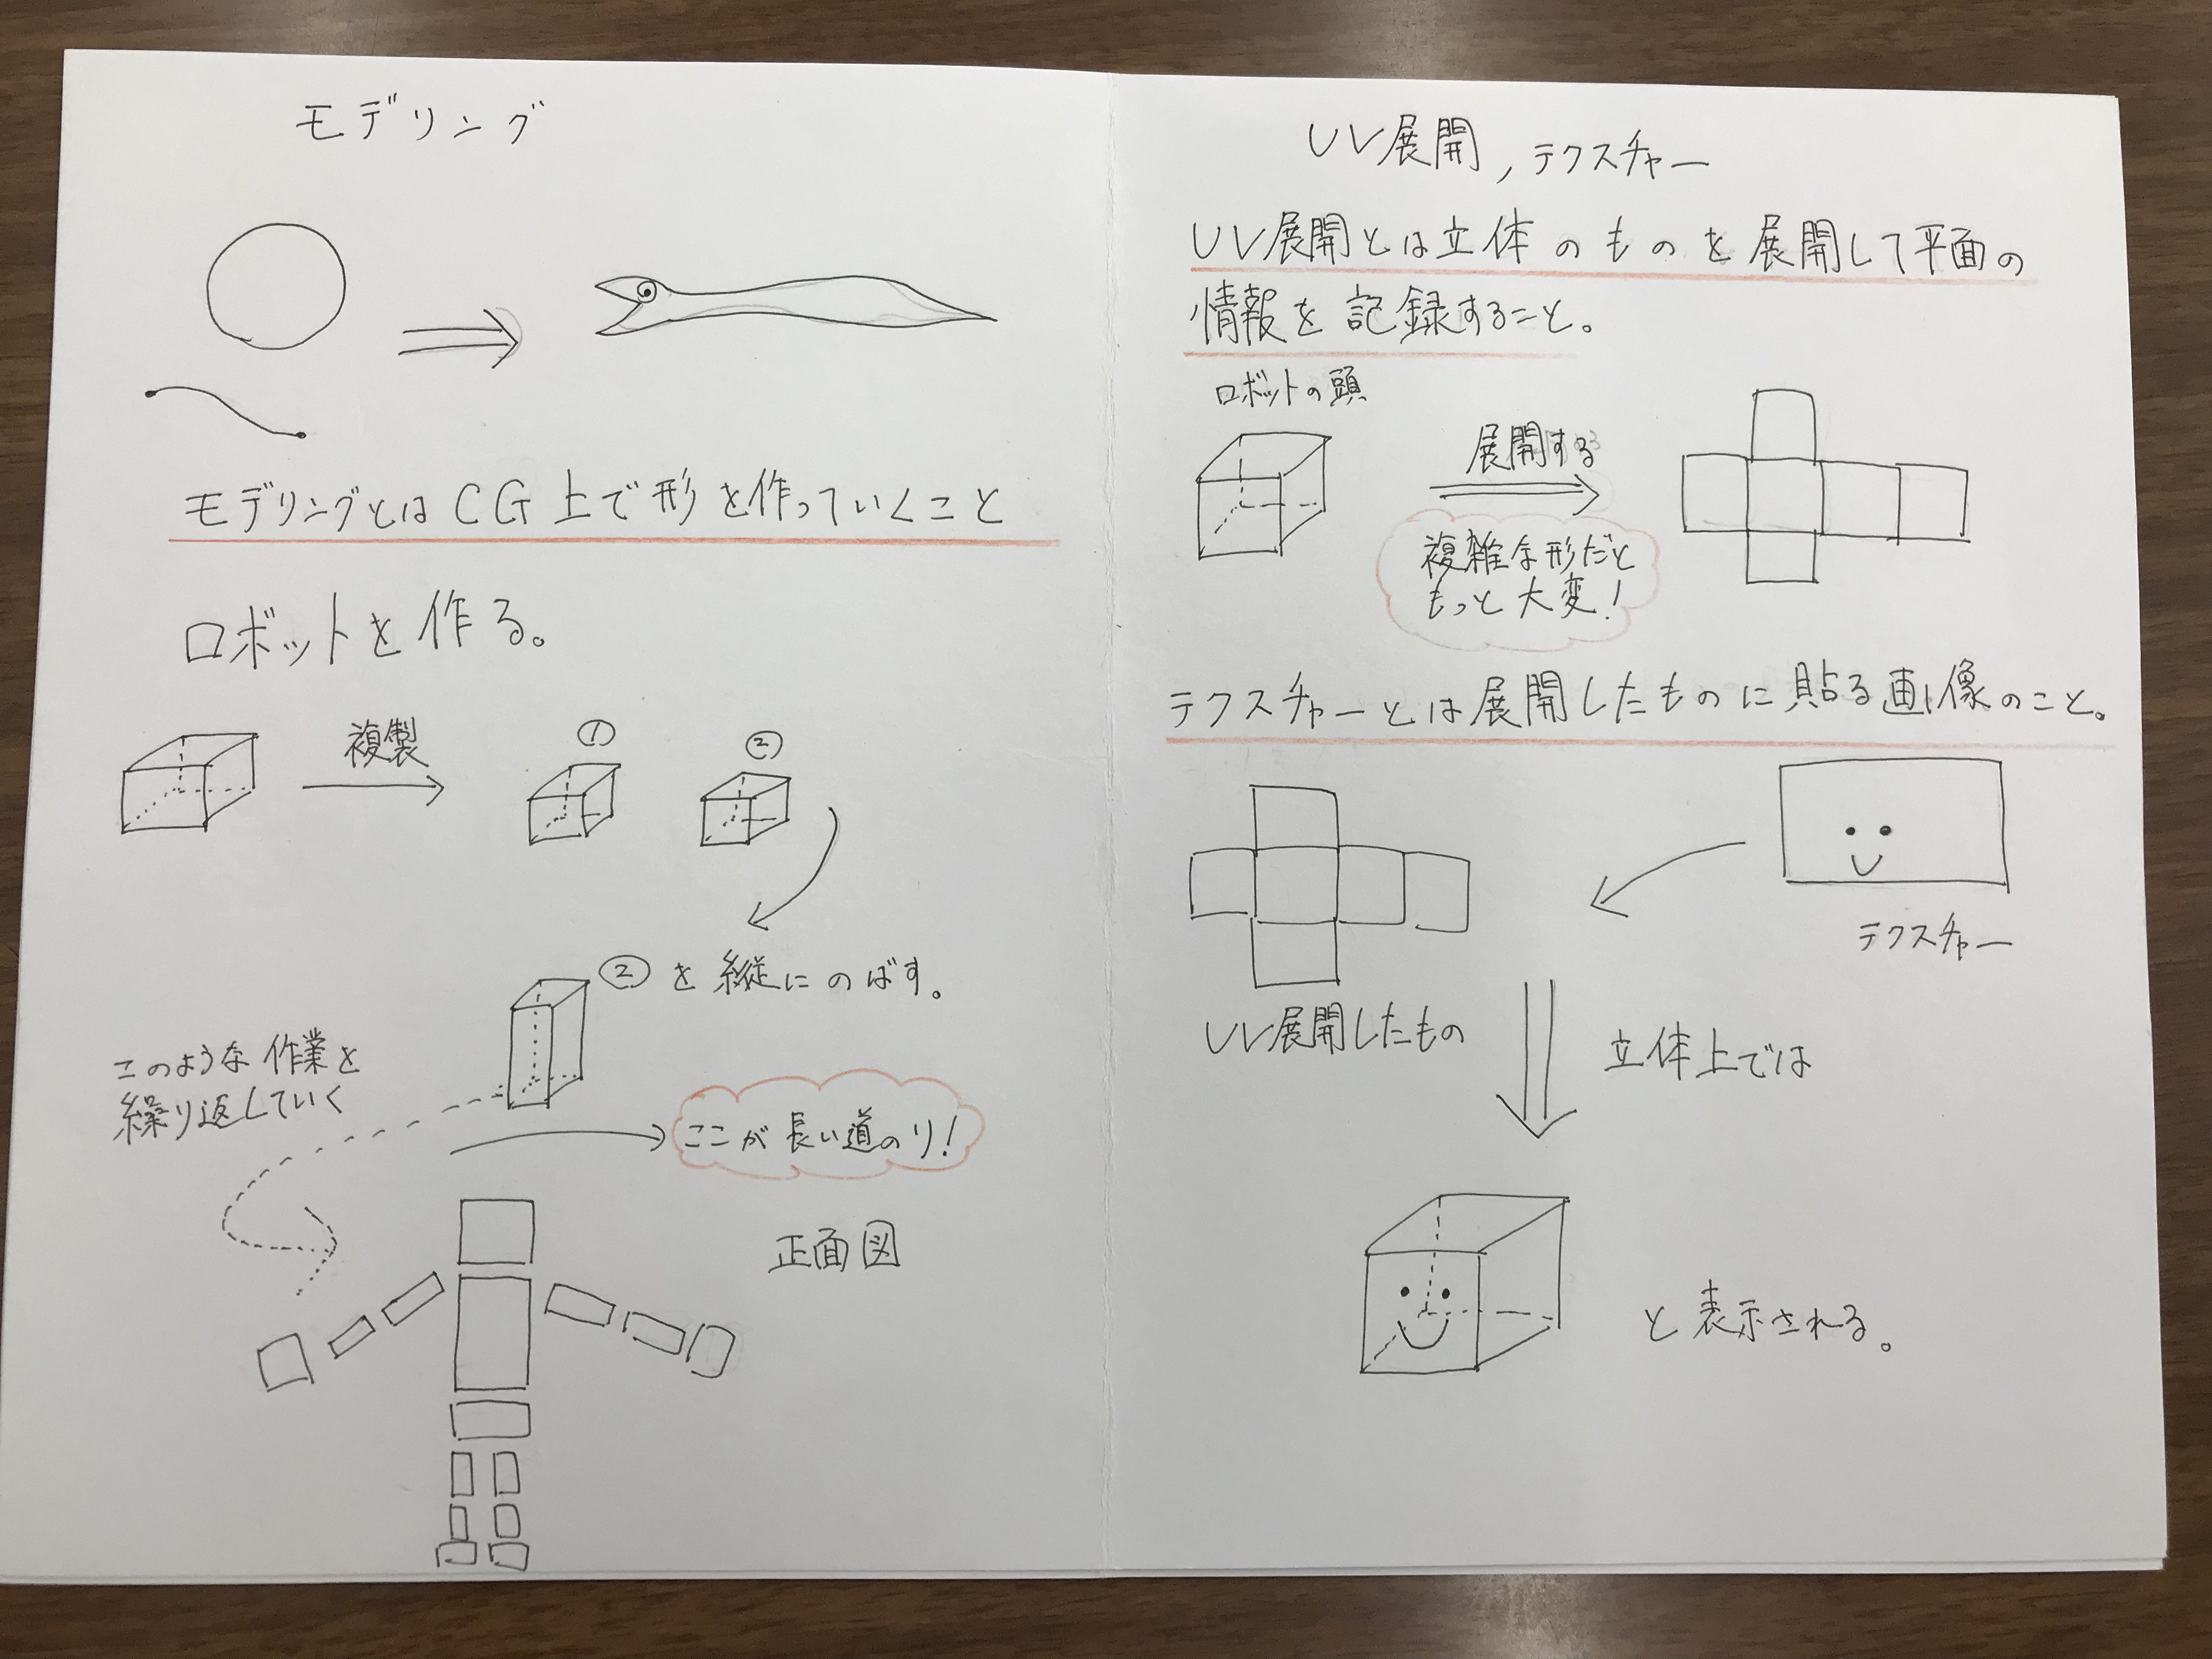 モデリング
モデリングとはCG上で形を作っていくこと
ロボットを作る。
複製
①
②
②を縦にのばす。
このような作業を
繰り返していく
ここが長い道のり!
正面図
UV展開,テクスチャー
UV展開とは立体のものを展開して平面の
情報を記録すること。
ロボットの頭
展開する
複雑な形だと
もっと大変!
テクスチャーとは展開したものに貼る画像のこと。
テクスチャー
UV展開したもの
立体上では
と表示される。